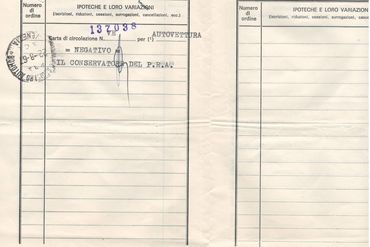 Numero
di
ordine
IPOTECHE E LORO VARIAZIONI
(Iscrizioni, riduzioni, cessioni, surrogazioni, cancellazioni, ecc.)
137038
Carta di circolazione N. per (¹) AUTOVETTURA
= NEGATIVO =
IL CONSERVATORE DEL P.R.A.
VENEZIA
Numero
di
ordine
IPOTECHE E LORO VARIAZIONI
(Iscrizioni, riduzioni, cessioni, surrogazioni, cancellazioni